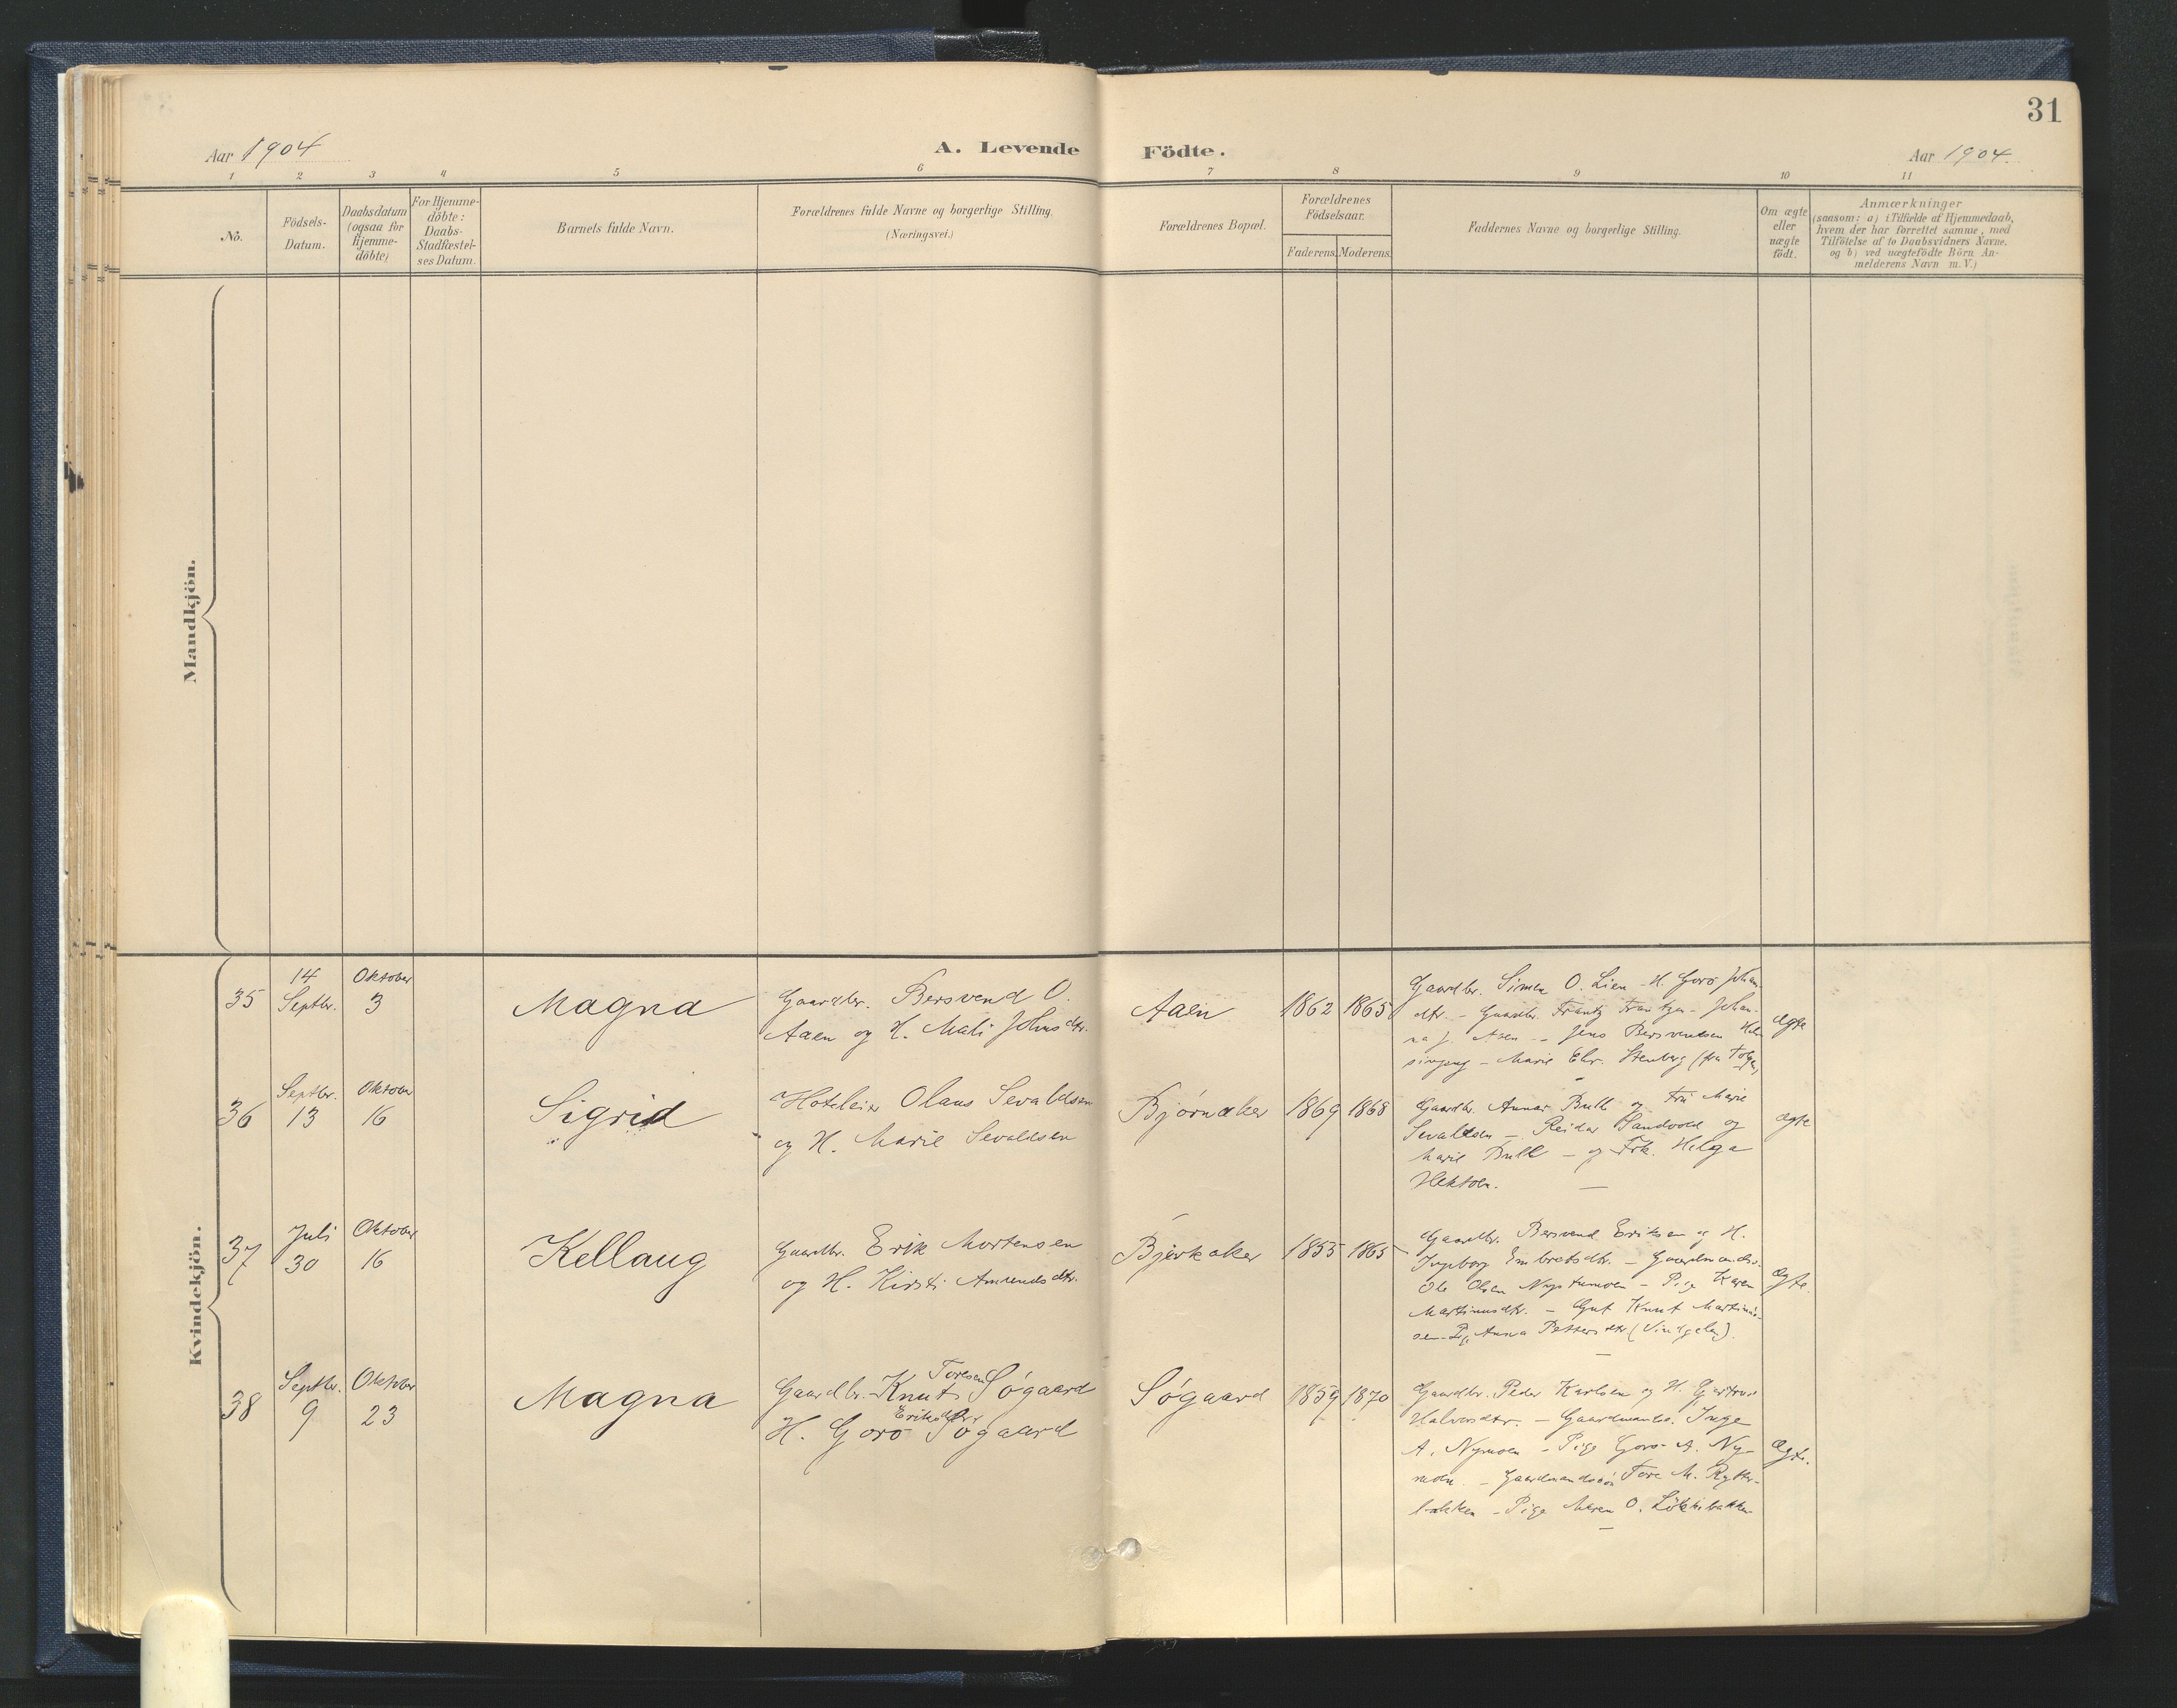 31
Aar 1904
A. Levende Födte.
Aar 1904.
1 2 3 4 5 6 7 8 9 10 11
No.
Födsels-
Datum.
Daabsdatum
(ogsaa for
Hjemme-
döbte)
For Hjemme-
döbte:
Daabs-
Stadfæstel-
ses Datum.
Barnets fulde Navn.
Forældrenes fulde Navne og borgerlige Stilling.
(Næringsvei.)
Forældrenes Bopæl.
Forældrenes
Födselsaar.
Faderens. Moderens.
Faddernes Navne og borgerlige Stilling.
Om ægte
eller
uægte
födt.
Anmærkninger
(saasom: a) i Tilfælde af Hjemmedaab,
hvem der har forrettet samme, med
Tilföielse af to Daabsvidners Navne,
og b) ved uægtefödte Börn An-
melderens Navn m.V.)
Mandkjön.
Kvindekjön.
35
14
Septbr.
Oktober
3
Magna
Gaardbr. Bersvend O.
Aaen og H. Mali Johnsdtr.
Aaen
1862 1865
Gaardbr. Simen O. Lien - H. Goro Johan-
dtr. - Gaardbr. Frantz Frantzen - Johan-
na J. Aaen - Jens Bersvendsen
- Marie Chr. Stenberg (fra Tolgen)
ægte
36
Septbr.
13
Oktober
16
Sigrid
Hoteleier Olaus Sevaldsen
og H. Marie Sevaldsen
Bjørnaker
1869 1868
Gaardbr. Annar Bull og Fru Marie
Sevaldsen - Reidar Sandvold og
Marie Bull - og Frk. Helga
Hektoen.
ægte
37
Juli
30
Oktober
16
Kellaug
Gaardbr. Erik Mortensen
og H. Kirsti Amundsdtr.
Bjerkaker
1855 1865
Gaardbr. Bersvend Eriksen og H.
Ingeborg Embretsdtr. - Gaardmandss.
Ole Olsen Nystumoen - Pige Karen
Martinusdtr. - Gut Knut Martinus-
sen - Pige Anna Pettersdtr (Vingelen).
Ægte.
38
Septbr.
9
Oktober
23
Magna
Gaardbr. Knut Toresen Søgaard
H. Goro Eriksdtr. Søgaard
Søgaard
1859 1870
Gaardbr. Peder Karlsen og H. Gjertrud
Halvorsdtr. - Gaardmands. Inge
A. Nymoen - Pige Goro A. Ny-
moen. - Gaardmandssøn Tore M. Rytter-
bakken - Pige Maren O. Løkkebakken
Ægte.